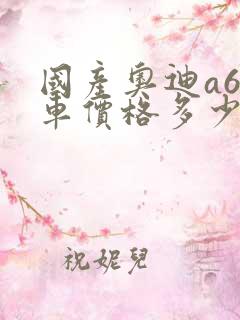 國產奧迪a6
車價格多少
祝妮兒